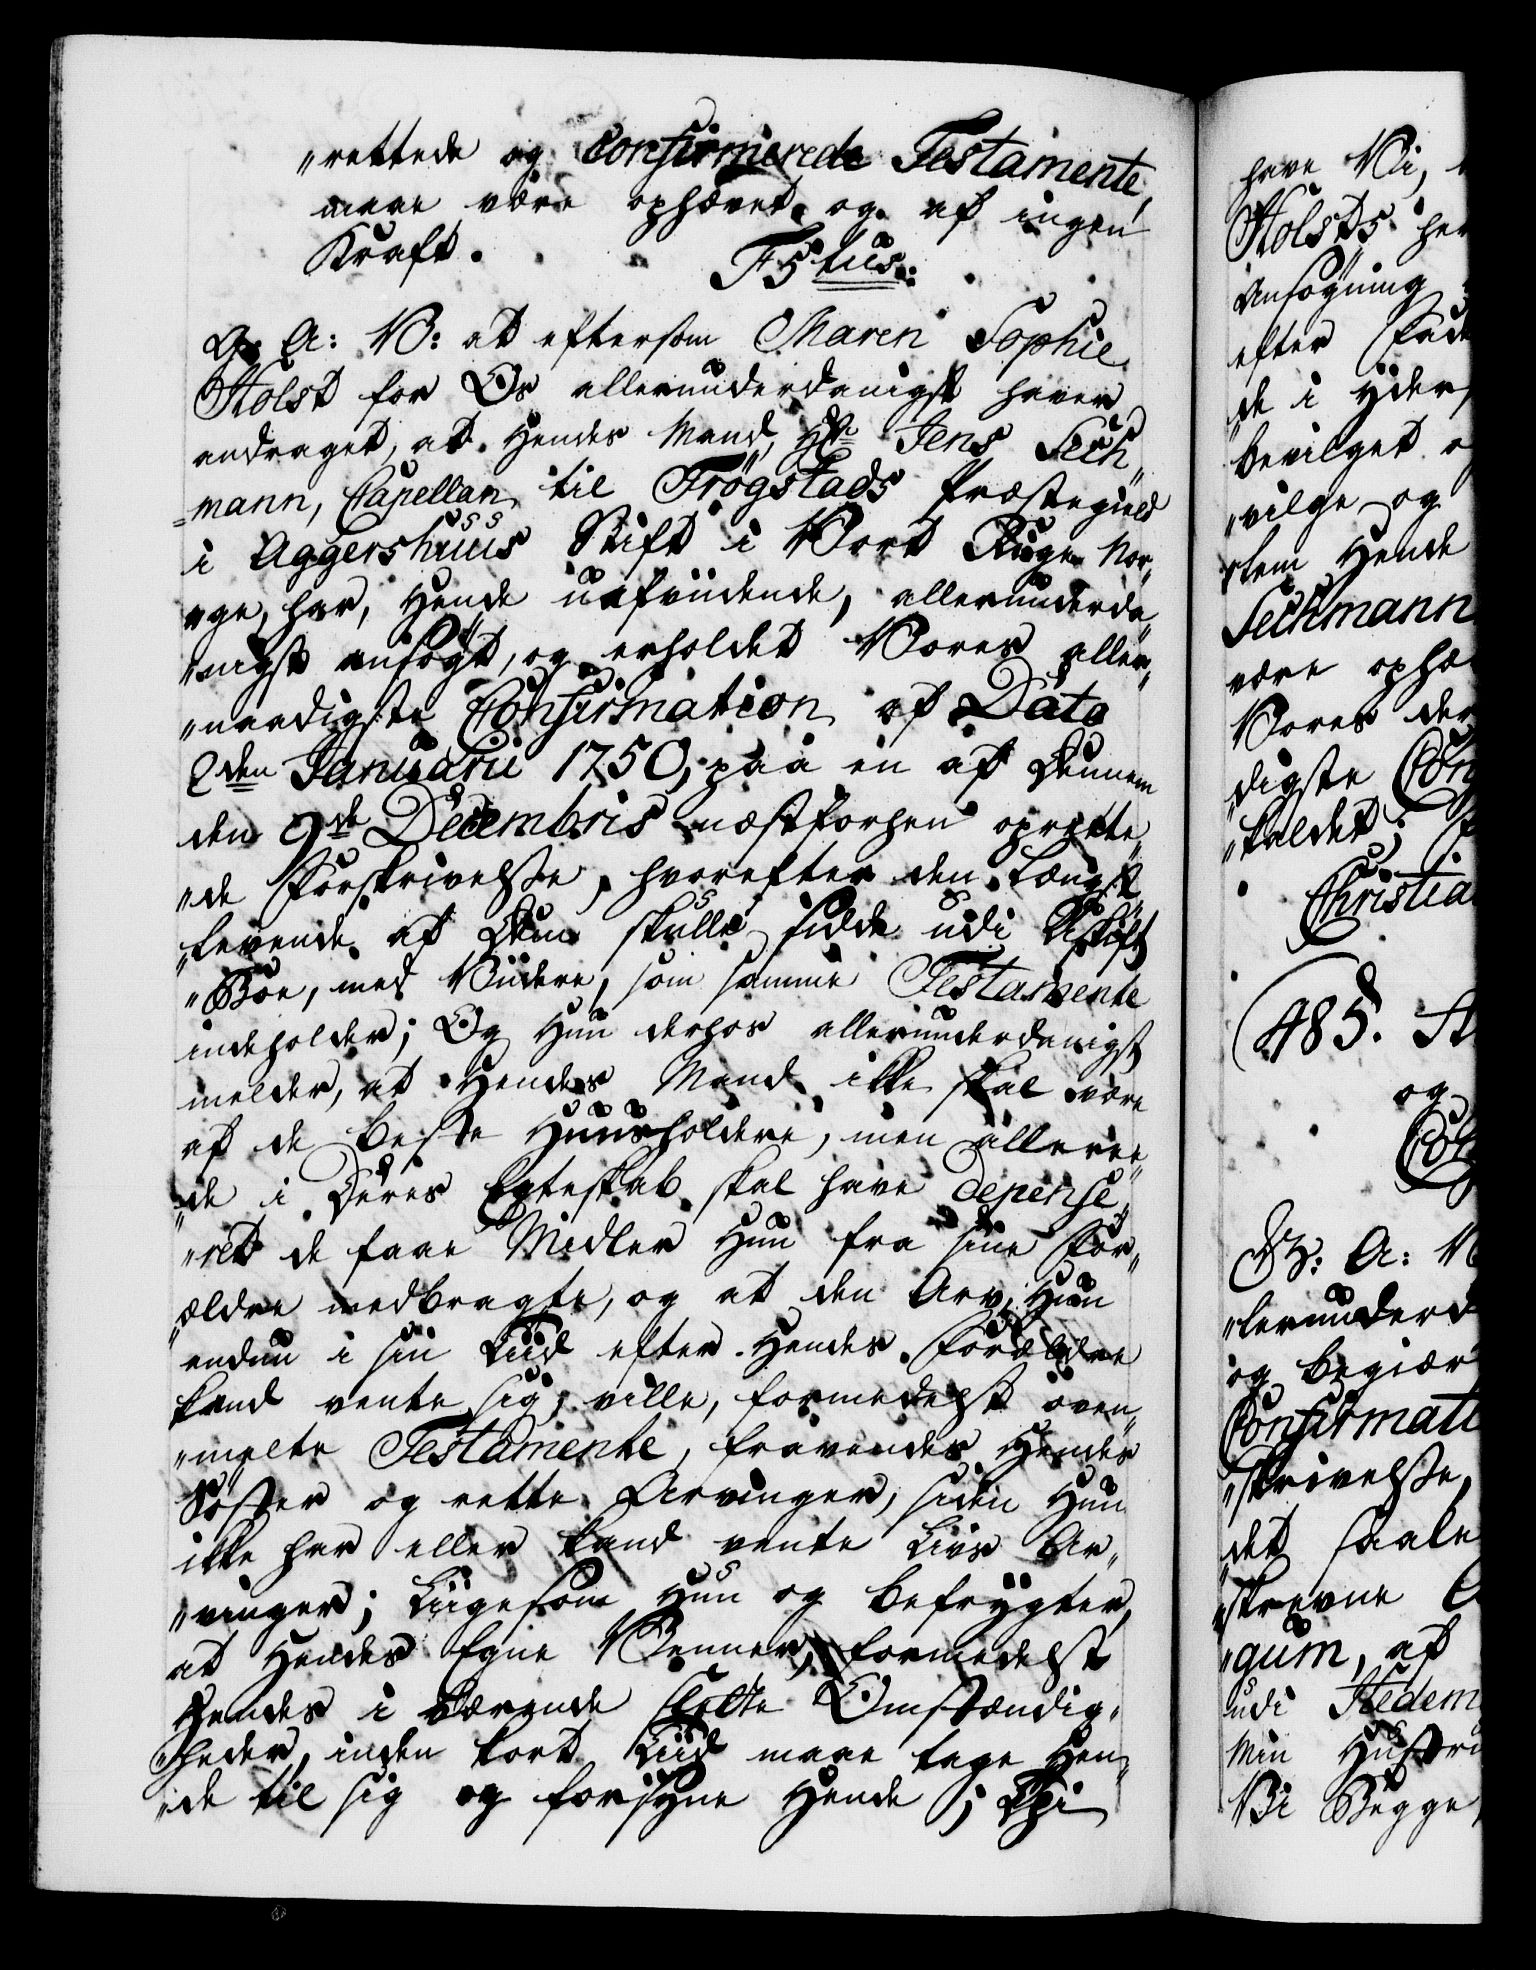 "rettede og Confirmerede Testamente,
maae være ophævet og af ingen
Kraft.
F5tus:
G: A: V: at eftersom Maren Sophie
Holst for Os allerunderdanigst haver
andraget, at Hendes Mand, Hr Jens Sech"
"mann, Capellan til Trøgstads Præstegield
i Aggershuus Stift i Vort Rige Nor"
"ge, har, Hende uafvidende, allerunderda"
"nigst ansøgt, og erholdet Vores aller"
"naadigste Confirmation af Dato
2den Januarii 1750, paa en af Dennem
den 9de Decembris næstforhen oprette"
"de Forskrivelse, hvorefter den Længst
"levende af Dem skulle sidde udi Uskift
"Boe, med Viidere, som samme Testamente
indeholder; Og Hun derhos allerunderdanigst
melder, at Hendes Mand ikke skal være
af de beste Huusholdere, men alleree"
"de i Deres Egteskab skal have depense"
"ret de faae Midler Hun fra sine For"
"ældre medbragte, og at den Arv, Hun
endnu i sin Tiid efter Hendes Forældre
kand vente sig, ville, formedelst oven"
"melte Testamente, fravendes Hendes
Søster og rette Arvinger, siden Hun
ikke har eller kand vente Livs Ar"
"vinger; Liigesom Hun og befrygter,
at Hendes Egne Venner, formedelst
Hendes i værende slette Omstændig"
"heder, inden kort Tiid maae tage Hen"
"de til sig og forsyne Hende; Thi
have Vi,
Holsts her
Ansøgning
efter Fade
de i Yder
bevilget o
"vilge og
stem Hende
Sechmann
være ophæ
Vores der
digste Con
"kaldet;
Christia
485. St
og
Con
G: A: V
"lerunderd
og begiær
Confirmati
"skrivelse,
det saale
"skrevne
"gum, af
udi Stedem
Min Hustru
Vi Begge